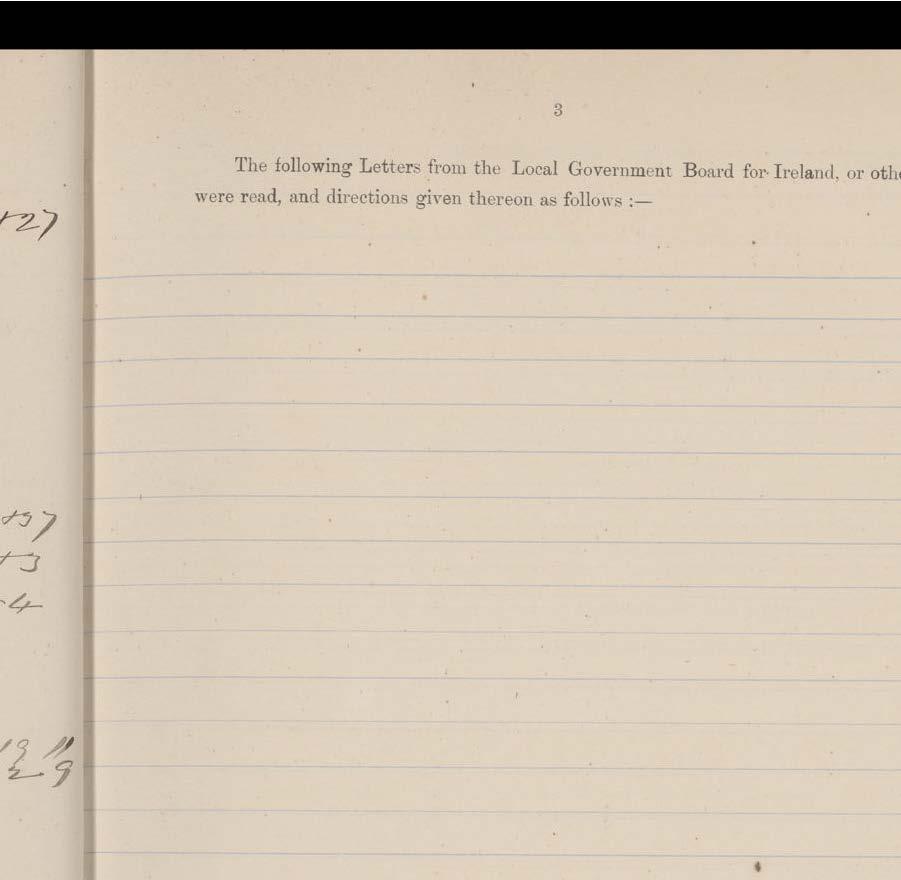 3
The following Letters from the Local Government Board for Ireland, or
were read, and directions given thereon as follows :—
27
97
3
4